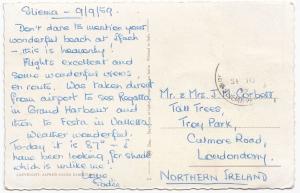 Sliema - 9/9/59.
Don't dare to mention your
wonderful beach at
- this is heavenly!
Flights excellent and
some wonderful views,
en route. Was taken direct
from airport to see Regatta
in Grand Harbour and
then to Festa in Valletta.
Weather wonderful.
Today it is 87° - I
have been looking for shade
which is unlike me!
Love
Mr. & Mrs. J. Corbett,
Tall Trees,
Troy Park,
Culmore Road,
Londonderry.
NORTHERN IRELAND